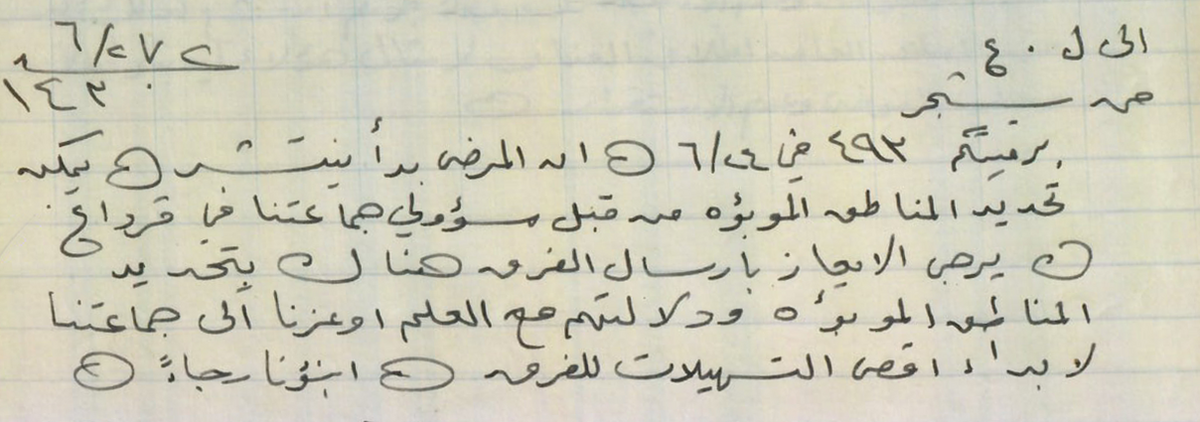 الى ل ٤٠
٦/٢٧
١٤٣٠
من شجر
برقيتكم ٤٩٣ في ٦/٢٤ ن ان المرض بدأ ينتشر ن يمكن
تحديد المناطق الموبؤه من قبل مسؤولي جماعتنا في قرداغ
ن يرجى الايعاز بارسال الفرق هناك بتحديد
المناطق الموبؤه ودلالتهم مع العلم اوعزنا الى جماعتنا
لابداء اقصى التسهيلات للفرق ن انبؤنا رجاءً ن